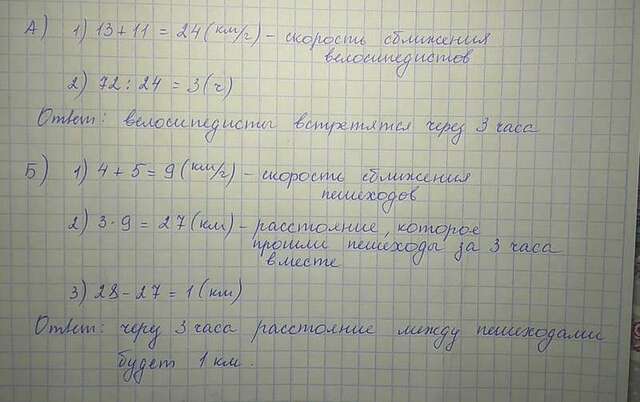 А) 1) 13 + 11 = 24 (км/ч) - скорость сближения
велосипедистов
2) 72 : 24 = 3 (ч)
Ответ: велосипедисты встретятся через 3 часа
Б) 1) 4 + 5 = 9 (км/ч) - скорость сближения
пешеходов
2) 3 · 9 = 27 (км) - расстояние, которое
прошли пешеходы за 3 часа
вместе
3) 28 - 27 = 1 (км)
Ответ: через 3 часа расстояние между пешеходами
будет 1 км.